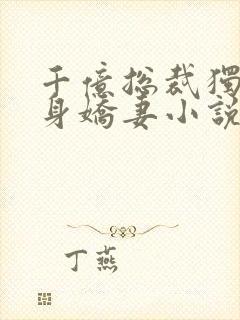 千億總裁獨
身嬌妻小說
丁燕